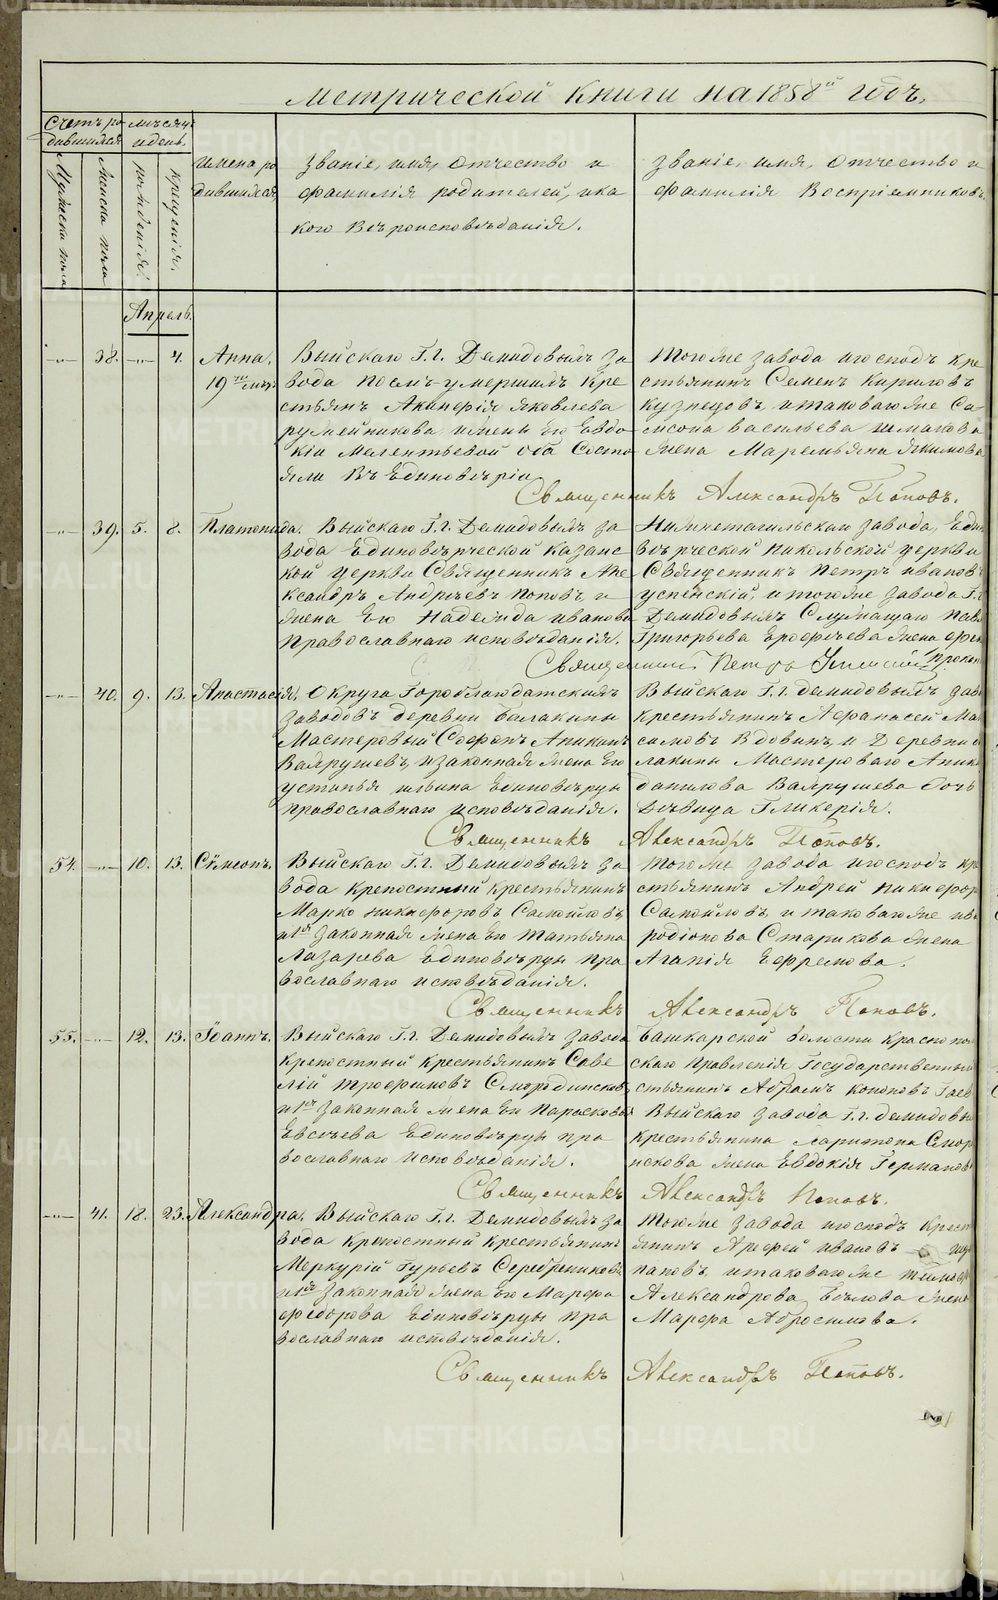 Метрической книги на 1858й годъ.
Счетъ ро
дившихся
Мѣсяцъ
и день.
Мужеска пола
Женска пола
рожденія.
крещенія.
Имена ро
дившихся
Званіе, имя, отчество и
фамилія родителей, и ка
кого вѣроисповѣданія.
Званіе, имя, отчество и
фамилія воспріемниковъ.
Апрель
38. 4. Анна,
19ти
Выйскаго Г.г. Демидовыхъ за
вода послѣ умершихъ кре
стьянъ Акинфія Яковлева
ружейникова и жены его Евдо
кіи Мелентьевой оба состо
яли въ единовѣріи
Того же завода и господъ кре
стьянинъ Семенъ Кириловъ
Кузнецовъ, и таковаго же Са
мсона Васильева Шмакова
жена Маремьяна Якимова
Священникъ Александръ Поповъ.
39. 5. 8. Платонида.
Выйскаго Г.г. Демидовыхъ за
вода Единовѣрческой Казанс
кой церкви Священникъ Але
ксандръ Андреевъ Поповъ и
жена его Надежда Иванова
Православнаго исповѣданія.
Нижнетагильскаго завода, Един
вѣрческой Никольской церкви
Священникъ Петръ Ивановъ
Успенскій, и того же завода Г.г.
Демидовыхъ Служащаго Павл
Григорьева Ерофѣева жена
Священникъ Петръ Успенскій
40. 9. 13. Анастасія.
Округа Гороблагодатскихъ
заводовъ деревни Балакиной
Мастеровый Софонъ Аникинъ
Вахрушевъ, и законная жена его
Устинья Ильина Единовѣрцы
православнаго исповѣданія.
Выйскаго Г.г. Демидовыхъ заво
крестьянинъ Афанасей Мак
симовъ Вдовинъ, и Деревни Ба
лакиной Мастероваго Аники
данилова Вахрушева дочь
дѣвица Гликерія.
Священникъ Александръ Поповъ.
54. 10. 13. Сѵмеонъ.
Выйскаго Г.г. Демидовыхъ за
вода крепостный крестьянинъ
Марко Никифоровъ Самойловъ,
и 1ая законная жена его Татьяна
Лазарева Единовѣрцы пра
вославнаго исповѣданія.
Того же завода и господъ кр
стьянинъ Андрей Никифор
Самойловъ, и таковаго же
родіонова Старикова жена
Агапія Ефремова.
Священникъ Александръ Поповъ.
55. 12. 13. Іоаннъ.
Выйскаго Г.г. Демидовыхъ завода
крепостный крестьянинъ Саве
лій Трофимовъ Смородинсковъ
и 1ая законная жена его Парасковья
Евсѣева Единовѣрцы пра
вославнаго исповѣданія.
Башкарской волости краснопол
скаго правленія Государственный
стьянинъ Абрамъ Кононовъ Гаев
Выйскаго завода Г.г. Демидовы
крестьянина Харитона Смор
нскова жена Евдокія Германов
Священникъ Александръ Поповъ.
41. 18. 23. Александра.
Выйскаго Г.г. Демидовыхъ за
вода крепостный крестьянинъ
Меркурій Гурьевъ Серебрениковъ
и 1ая законная жена его Марфа
Федорова Единовѣрцы пра
вославнаго исповѣданія.
Того же завода и господъ крест
янинъ Арефей Ивановъ
пановъ, и таковаго же Тимоф
Александрова Бѣлова жена
Марфа Абросимова.
Священникъ Александръ Поповъ.
METRIKI.GASO-URAL.RU